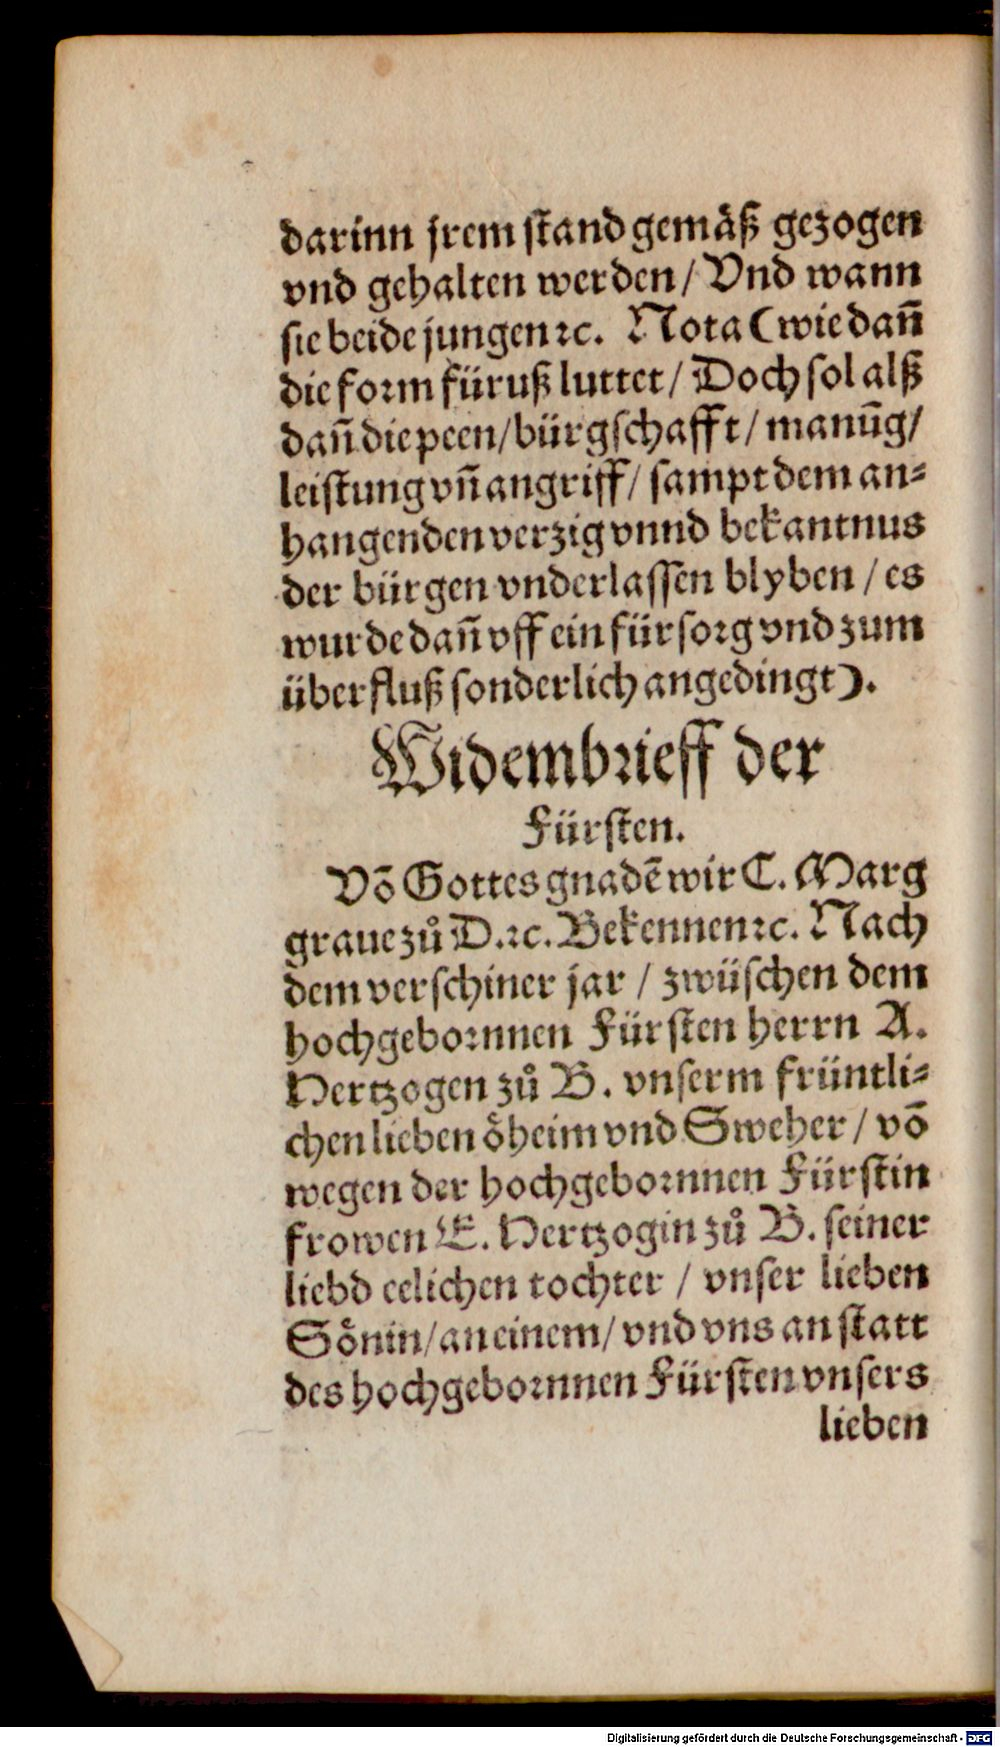 darinn jrem stand gemäß gezogen
vnd gehalten werden / Vnd wann
sie beide jungen ꝛc. Nota (wie dañ
die form für uß luttet / Doch sol alß
dañ die peen / bürgschafft / manũg /
leistung vñ angriff / sampt dem an⸗
hangenden verzig vnnd bekantnus
der bürgen vnderlassen blyben / es
wurde dañ vff ein fürsorg vnd zum
überfluß sonderlich angedingt).
Widembrieff der
Fürsten.
Võ Gottes gnadẽ wir C. Marg
graue zů D. ꝛc. Bekennen ꝛc. Nach
dem verschiner jar / zwüschen dem
hochgebornnen Fürsten herrn A.
Hertzogen zů B. vnserm früntli⸗
chen lieben öheim vnd Sweher / võ
wegen der hochgebornnen Fürstin
frowen E. Hertzogin zů B. seiner
liebd eelichen tochter / vnser lieben
Sönin / an einem / vnd vns an statt
des hochgebornnen Fürsten vnsers
lieben
Digitalisierung gefördert durch die Deutsche Forschungsgemeinschaft - DFG